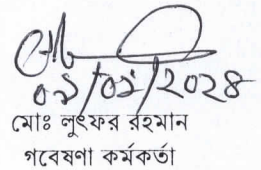 ০১/০১/২০২৪
মোঃ লুৎফর রহমান
গবেষণা কর্মকর্তা